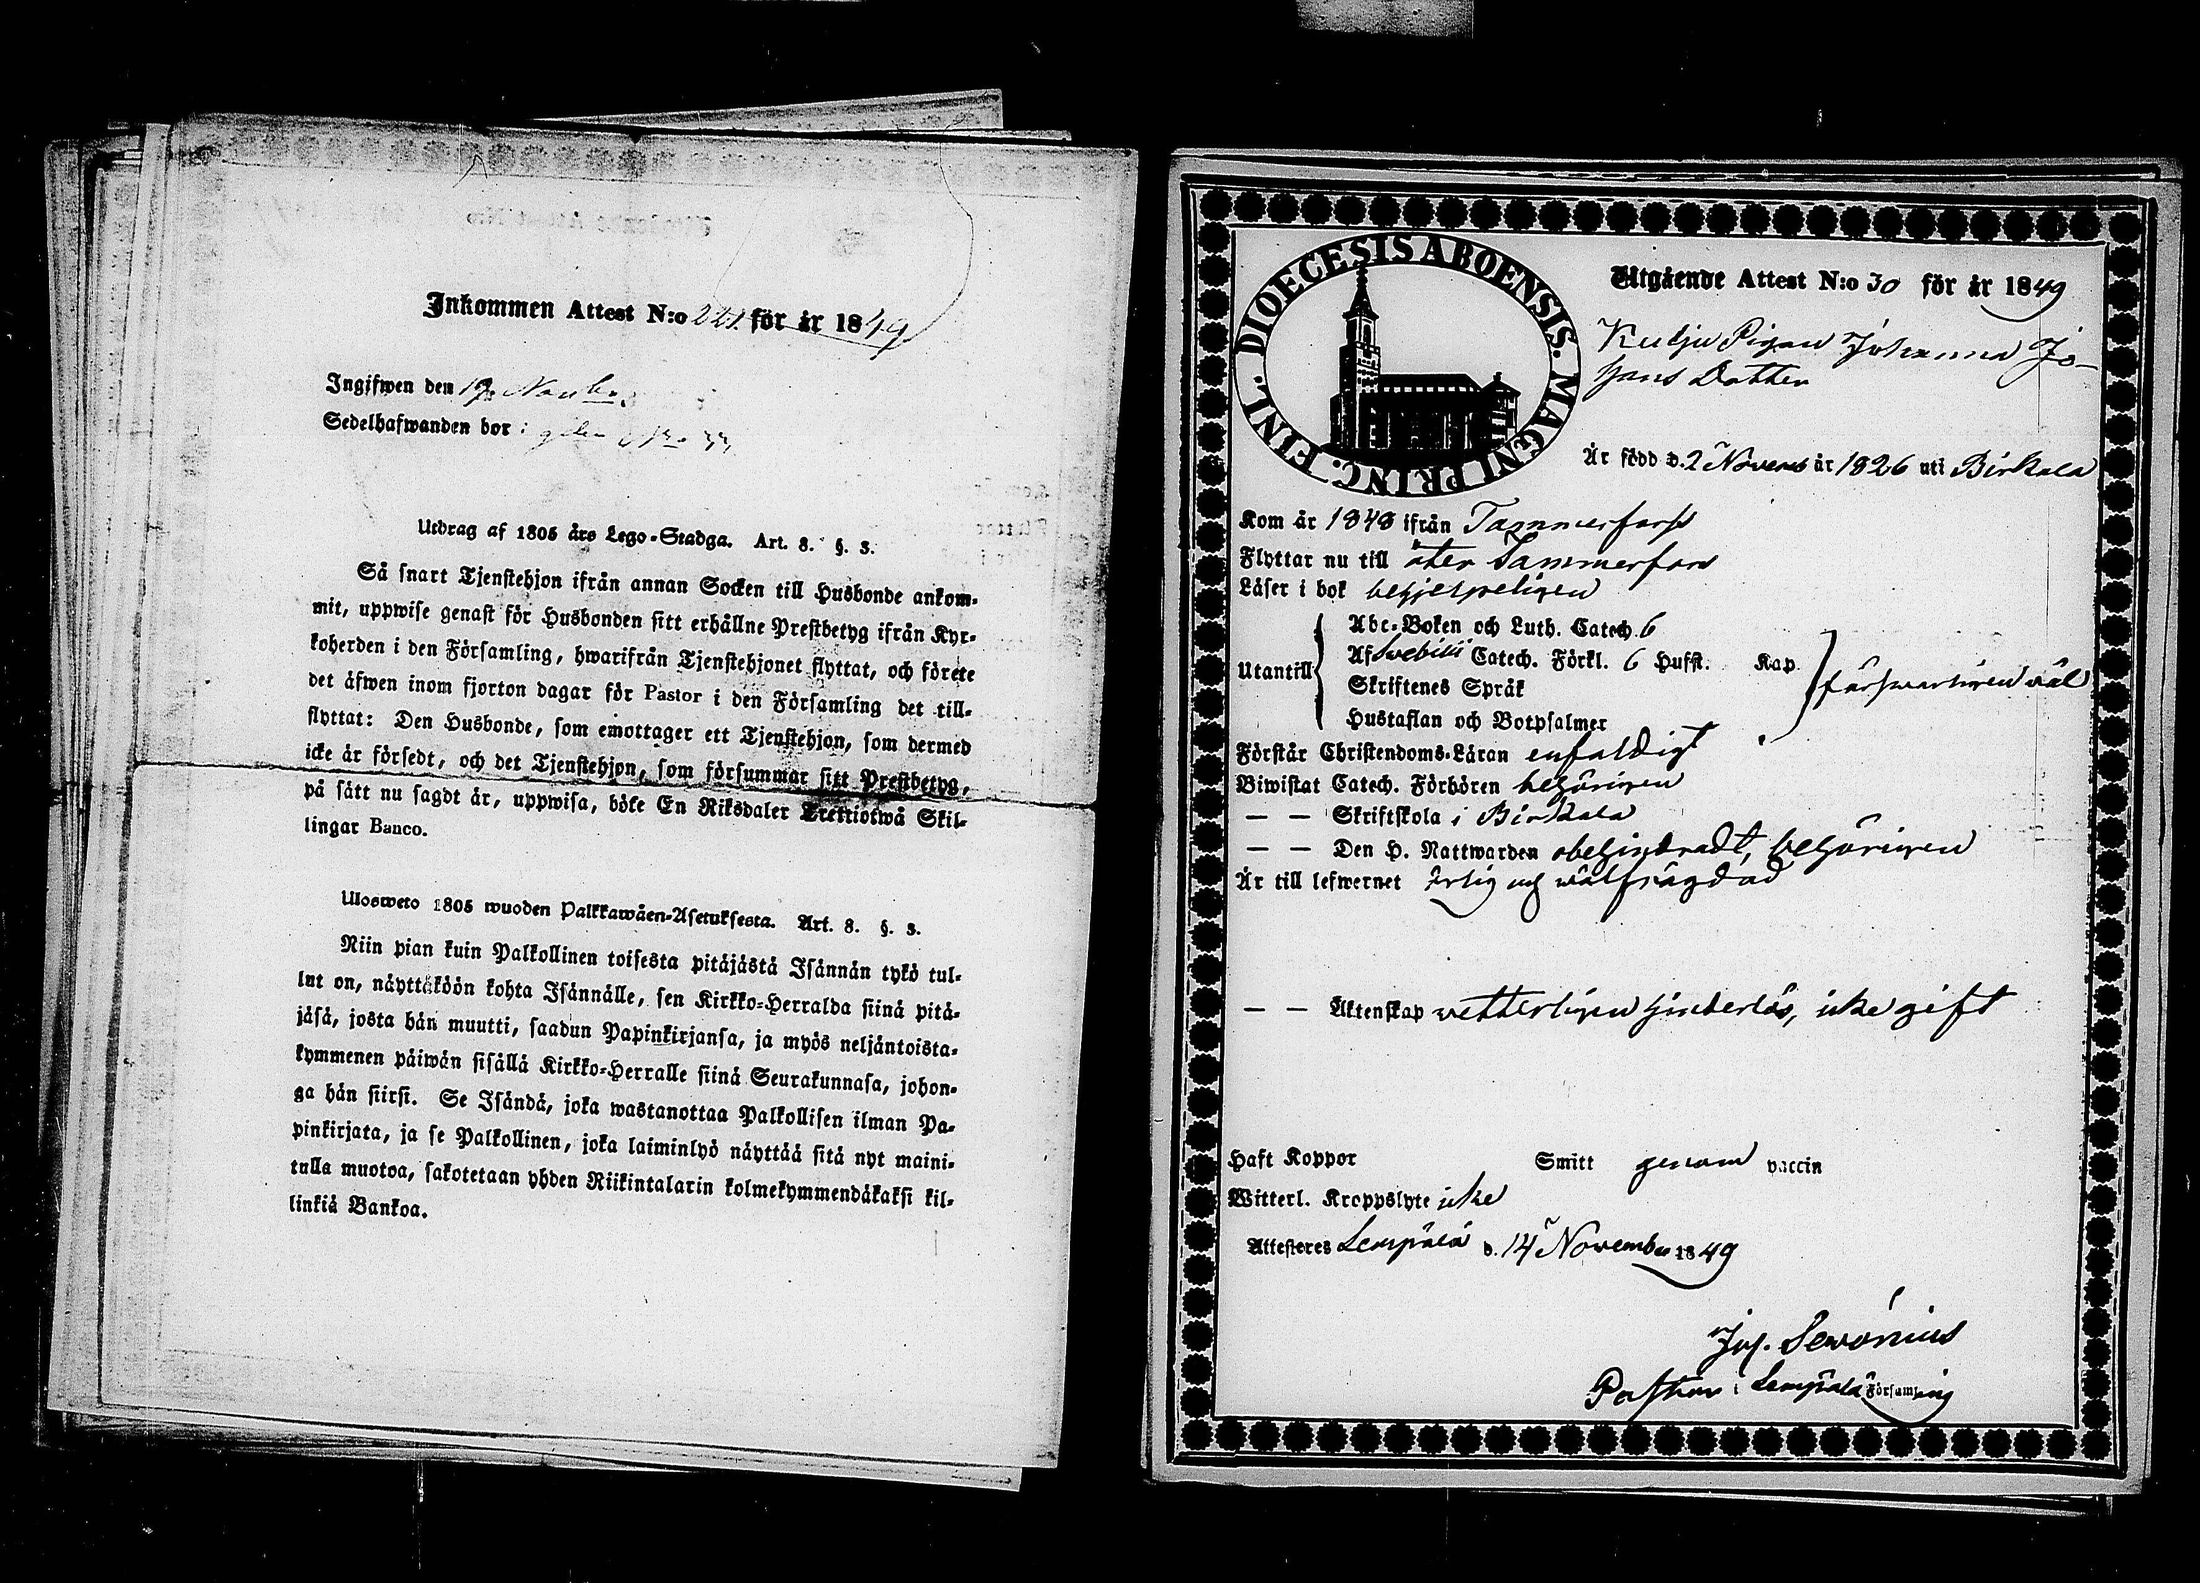 Inkommen Attest N:o 221 för år 1849
Ingifwen den 19 Novbr
Sedelhafwanden bor:
Utdrag af 1805 års Lego-Stadga. Art. 8. §. 3.
Så snart Tjenstehjon ifrån annan Socken till Husbonde ankom-
mit, uppwise genast för Husbonden sitt erhållne Prestbetyg ifrån Kyr-
koherden i den Församling, hwarifrån Tjenstehjonet flyttat, och förete
det äfwen inom fjorton dagar för Pastor i den Församling det till-
flyttat: Den Husbonde, som emottager ett Tjenstehjon, som dermed
icke är försedt, och det Tjenstehjon, som försummar sitt Prestbetyg,
på sätt nu sagdt är, uppwisa, böte En Riksdaler Trettiotwå Skil-
lingar Banco.
Ulosweto 1805 wuoden Palkkawäen-Asetuksesta. Art. 8. §. 3.
Niin pian kuin Palkollinen toisesta pitäjästä Isännän tykö tul-
lut on, näyttäköön kohta Isännälle, sen Kirkko-Herralda siinä pitä-
jäsä, josta hän muutti, saadun Papinkirjansa, ja myös neljäntoista-
kymmenen päiwän sisällä Kirkko-Herralle siinä Seurakunnasa, johon-
ga hän siirsi. Se Isändä, joka wastanottaa Palkollisen ilman Pa-
pinkirjata, ja se Palkollinen, joka laiminlyö näyttää sitä nyt maini-
tulla muotoa, sakotetaan yhden Riikintalarin kolmekymmendäkaksi kil-
linkiä Bankoa.
DIOECESIS ABOENSIS. MAGNI PRINC. FINL.
Utgående Attest N:o 30 för år 1849
Kulju Pigan Johanna Jo-
hans Dotter
Är född d. 2 Novemb år 1826 uti Birkala
Kom år 1848 ifrån Tammerfors
Flyttar nu till åter Tammerfors
Läser i bok behjelpeligen
Abc-Boken och Luth. Catech. 6
Utantill Af Svebilii Catech. Förkl. 6 Hufst. Kap. försvarligen väl
Skriftenes Språk
Hustaflan och Botpsalmer
Förstår Christendoms-Läran enfaldigt
Biwistat Catech. Förhören behörigen
— — Skriftskola i Birkala
— — Den H. Nattwarden obehindradt, behörigen
Är till lefwernet ärlig och wälfrägdad
— — Äktenskap vetterligen hinderlös, icke gift
Haft Koppor Smitt genom vaccin
Witterl. Kroppslyte icke
Attesteres Lempälä d. 14 November 1849
Jos. Sevonius
Pastor i Lempälä Församling